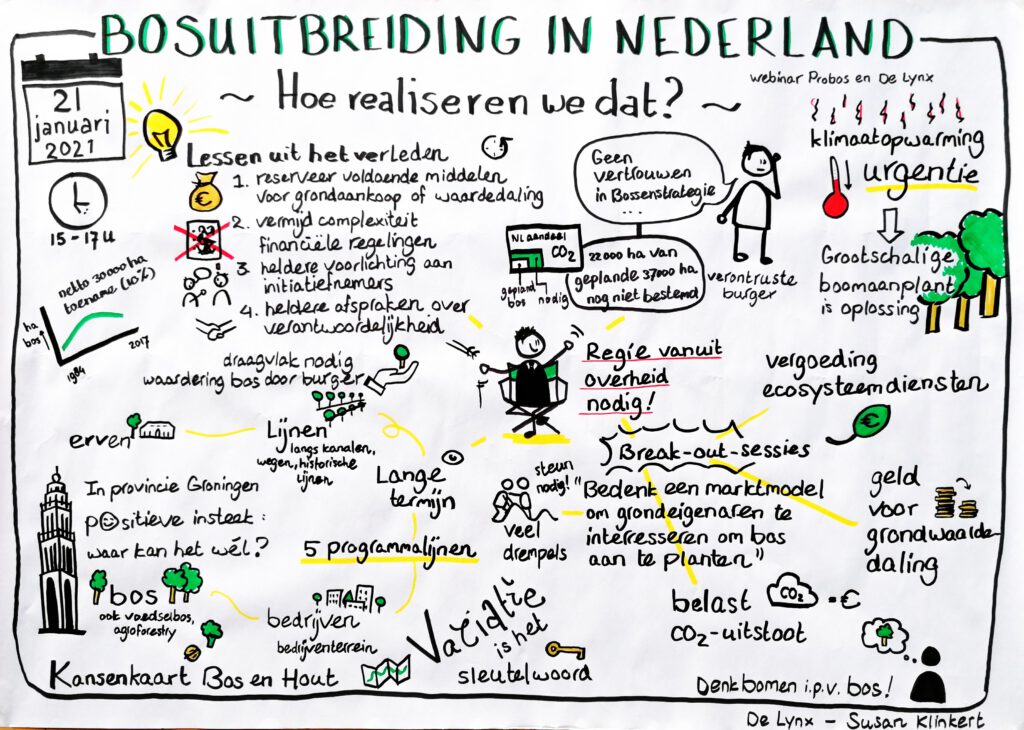 BOSUITBREIDING IN NEDERLAND
webinar Probos en De Lynx
~ Hoe realiseren we dat? ~
21
januari
2021
15 - 17 u
Lessen uit het verleden
1. reserveer voldoende middelen
voor grondaankoop of waardedaling
2. vermijd complexiteit
financiële regelingen
3. heldere voorlichting aan
initiatiefnemers
4. heldere afspraken over
verantwoordelijkheid
netto 30000 ha
toename (10%)
ha
bos
1984
2017
Geen
vertrouwen
in Bossenstrategie
...
NL aandeel
CO2
gepland
bos
nodig
22000 ha van
geplande 37000 ha
nog niet bestemd
verontruste
burger
klimaatopwarming
urgentie
Grootschalige
boomaanplant
is oplossing
draagvlak nodig
waardering bos door burger
Regie vanuit
overheid
nodig!
vergoeding
ecosysteemdiensten
€
erven
Lijnen
langs kanalen,
wegen, historische
lijnen
Lange
termijn
In provincie Groningen
positieve insteek:
waar kan het wél?
5 programmalijnen
bos
ook voedselbos,
agroforestry
bedrijven
bedrijventerrein
Kansenkaart Bos en Hout
Variatie
is het
sleutelwoord
Break-out-sessies
steun
nodig!
veel
drempels
"Bedenk een marktmodel
om grondeigenaren te
interesseren om bos
aan te planten"
geld
voor
grondwaarde-
daling
belast CO2 = €
CO2-uitstoot
Denk bomen i.p.v. bos!
De Lynx - Susan Klinkert